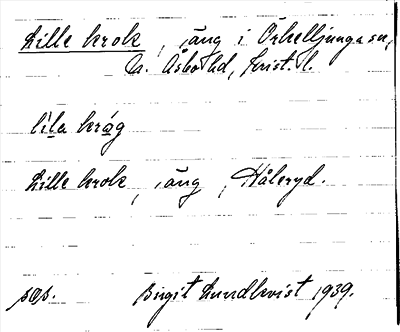 Lille krok, äng i Örkelljunga sn,
Ö. Åsbo hd, Krist. l.
lila kråg
Lille krok, äng, Håleryd.
søs. Birgit Lundkvist 1939.